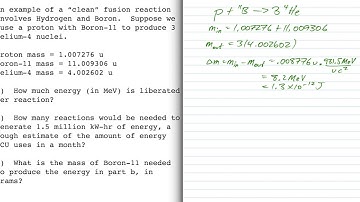 n example of a "clean" fusion reaction
nvolves Hydrogen and Boron. Suppose we
use a proton with Boron-11 to produce 3
elium-4 nuclei.
roton mass = 1.007276 u
oron-11 mass = 11.009306 u
elium-4 mass = 4.002602 u
) How much energy (in MeV) is liberated
er reaction?
) How many reactions would be needed to
enerate 1.5 million kW-hr of energy, a
ough estimate of the amount of energy
CU uses in a month?
) What is the mass of Boron-11 needed
o produce the energy in part b, in
rams?
p + ¹¹B —> 3 ⁴He
m_in = 1.007276 + 11.009306
m_out = 3(4.002602)
Δm = m_in - m_out = .008776 u · 931.5 MeV / u c²
= 8.2 MeV
= 1.3 × 10⁻¹² J